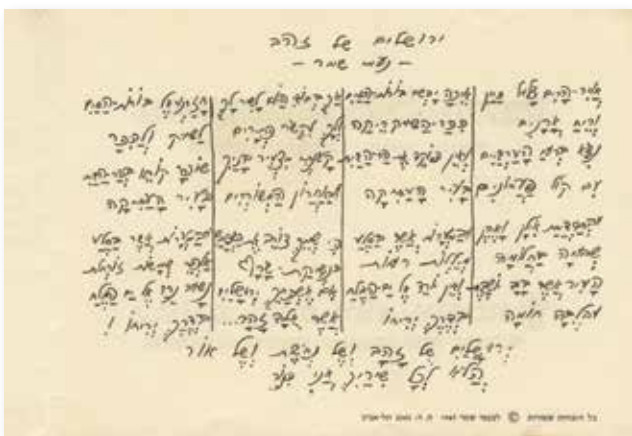 ירושלים של זהב
- נעמי שמר -
אֲוִיר-הָרִים צָלוּל כַּיַּיִן
וְרֵיחַ אֳרָנִים
נִשָּׂא בְּרוּחַ הָעַרְבַּיִם
עִם קוֹל פַּעֲמוֹנִים
וּבְתַרְדֵּמַת אִילָן וָאֶבֶן
שְׁבוּיָה בַּחֲלוֹמָהּ
הָעִיר אֲשֶׁר בָּדָד יוֹשֶׁבֶת
וּבְלִבָּהּ חוֹמָה
אֵיכָה יָבְשׁוּ בּוֹרוֹת-הַמַּיִם
כִּכַּר-הַשּׁוּק רֵיקָה
וְאֵין פּוֹקֵד אֶת הַר-הַבַּיִת
בָּעִיר הָעַתִּיקָה
וּבַמְּעָרוֹת אֲשֶׁר בַּסֶּלַע
מְיַלְּלוֹת רוּחוֹת
וְאֵין יוֹרֵד אֶל יַם-הַמֶּלַח
בְּדֶרֶךְ יְרִיחוֹ
אַךְ בְּבוֹאִי הַיּוֹם לָשִׁיר לָךְ
וְלָךְ לִקְשֹׁר כְּתָרִים
קָטֹנְתִּי מִצְּעִיר בָּנַיִךְ
וּמֵאַחֲרוֹן הַמְשׁוֹרְרִים
כִּי שְׁמֵךְ צוֹרֵב אֶת הַשְּׂפָתַיִם
כִּנְשִׁיקַת שָׂרָף
אִם אֶשְׁכָּחֵךְ יְרוּשָׁלַיִם
אֲשֶׁר כֻּלָּהּ זָהָב...
חָזַרְנוּ אֶל בּוֹרוֹת-הַמַּיִם
לַשּׁוּק וְלַכִּכָּר
שׁוֹפָר קוֹרֵא בְּהַר-הַבַּיִת
בָּעִיר הָעַתִּיקָה
וּבַמְּעָרוֹת אֲשֶׁר בַּסֶּלַע
אַלְפֵי שְׁמָשׁוֹת זוֹרְחוֹת
נָשׁוּב נֵרֵד אֶל יַם-הַמֶּלַח
בְּדֶרֶךְ יְרִיחוֹ !
יְרוּשָׁלַיִם שֶׁל זָהָב וְשֶׁל נְחֹשֶׁת וְשֶׁל אוֹר
הֲלֹא לְכָל שִׁירַיִךְ אֲנִי כִּנּוֹר
כל הזכויות שמורות © לנעמי שמר תל-אביב